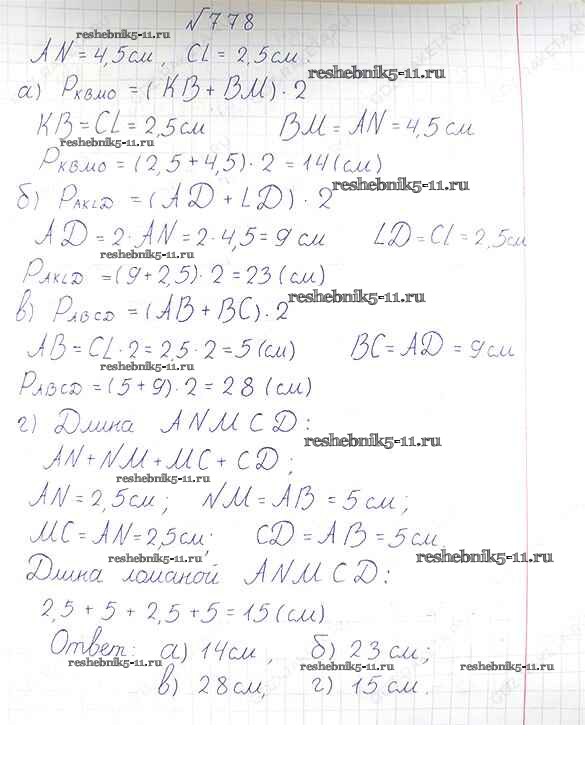 №778
AN = 4,5см, CL = 2,5см
reshebnik5-11.ru
reshebnik5-11.ru
а) Pквмо = (KB + BM) · 2
KB = CL = 2,5см BM = AN = 4,5см
reshebnik5-11.ru
Pквмо = (2,5 + 4,5) · 2 = 14 (см)
reshebnik5-11.ru
б) PAKLD = (AD + LD) · 2
AD = 2 · AN = 2 · 4,5 = 9 см LD = CL = 2,5см
reshebnik5-11.ru
PAKLD = (9 + 2,5) · 2 = 23 (см)
reshebnik5-11.ru
в) PABCD = (AB + BC) · 2
AB = CL · 2 = 2,5 · 2 = 5 (см) BC = AD = 9см
reshebnik5-11.ru
PABCD = (5 + 9) · 2 = 28 (см)
г) Длина ANMCD:
reshebnik5-11.ru
AN + NM + MC + CD;
reshebnik5-11.ru
AN = 2,5см; NM = AB = 5см;
MC = AN = 2,5см; CD = AB = 5см
reshebnik5-11.ru
reshebnik5-11.ru
Длина ломаной ANMCD:
2,5 + 5 + 2,5 + 5 = 15 (см)
Ответ: а) 14см, б) 23см;
reshebnik5-11.ru
reshebnik5-11.ru
reshebnik5-11.ru
в) 28см, г) 15см.